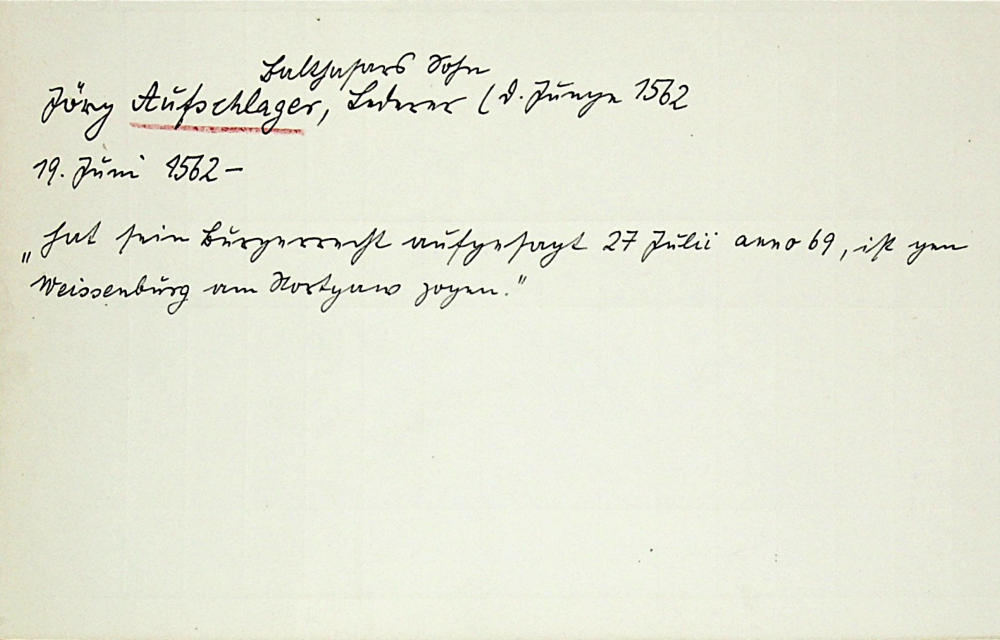 Balthasars Sohn
Jörg Aufschlager, Lederer (d. Junge 1562
19. Juni 1562 –
„hat sein Bürgerrecht aufgesagt 27 Julii anno 69, ist gen
Weissenburg am Nortgaw zogen."